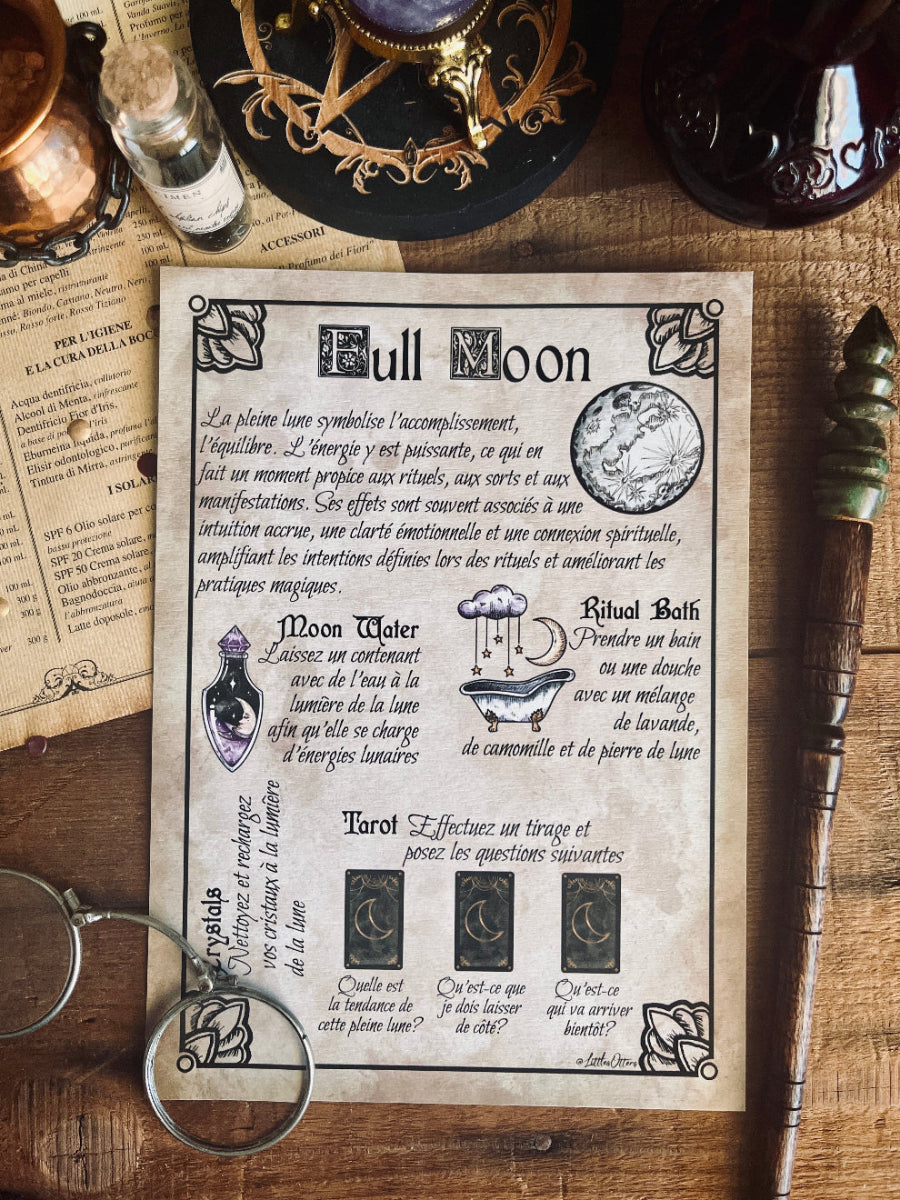 100 mL
Vanda Suavis,
Profumo per
L'Inverno, Lo
di China
amo per capelli
ma al miele, ristrutturante
Biondo, Castano, Neutro, Nero,
Rosso forte, Rosso Tiziano
250 mL
250 mL
100 mL
ACCESSORI
Profumo dei Fiori"
PER L'IGIENE
E LA CURA DELLA BOC
Acqua dentifricia, collutorio
Alcool di Menta, rinfrescante
Dentifricio Fior d'Iris,
a base di
Eburneina liquida, profuma l'
Elisir odontologico, purificant
Tintura di Mirra, astringent
I SOLAR
SPF 6 Olio solare per co
bassa protezione
SPF 20 Crema solare,
SPF 50 Crema solare,
Olio abbronzante,
Bagnodoccia, aiuta
l'abbronzatura
Latte doposole,
100 mL
300 g
300 g
300 g
Full Moon
La pleine lune symbolise l'accomplissement,
l'équilibre. L'énergie y est puissante, ce qui en
fait un moment propice aux rituels, aux sorts et aux
manifestations. Ses effets sont souvent associés à une
intuition accrue, une clarté émotionnelle et une connexion spirituelle,
amplifiant les intentions définies lors des rituels et améliorant les
pratiques magiques.
Moon Water
Laissez un contenant
avec de l'eau à la
lumière de la lune
afin qu'elle se charge
d'énergies lunaires
Ritual Bath
Prendre un bain
ou une douche
avec un mélange
de lavande,
de camomille et de pierre de lune
Crystals
Nettoyez et rechargez
vos cristaux à la lumière
de la lune
Tarot Effectuez un tirage et
posez les questions suivantes
Quelle est
la tendance de
cette pleine lune?
Qu'est-ce que
je dois laisser
de côté?
Qu'est-ce
qui va arriver
bientôt?
@LittlesOtters